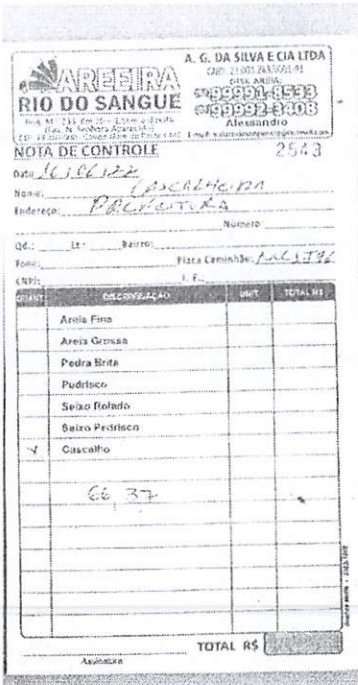 AREEIRA
RIO DO SANGUE
A. G. DA SILVA E CIA LTDA
DISK AREIA:
99991-8533
99992-3408
Alessandro
NOTA DE CONTROLE
2543
Data 16/06/22
Nome: CASCALHEIRA
Endereço: PREFEITURA
Número:
Qd.: Lt.: Bairro:
Fone: Placa Caminhão:
CNPJ: I. E.
QUANT. DISCRIMINAÇÃO UNIT. TOTAL R$
Areia Fina
Areia Grossa
Pedra Brita
Pedrisco
Seixo Rolado
Seixo Pedrisco
Cascalho
66,37
TOTAL R$
Assinatura